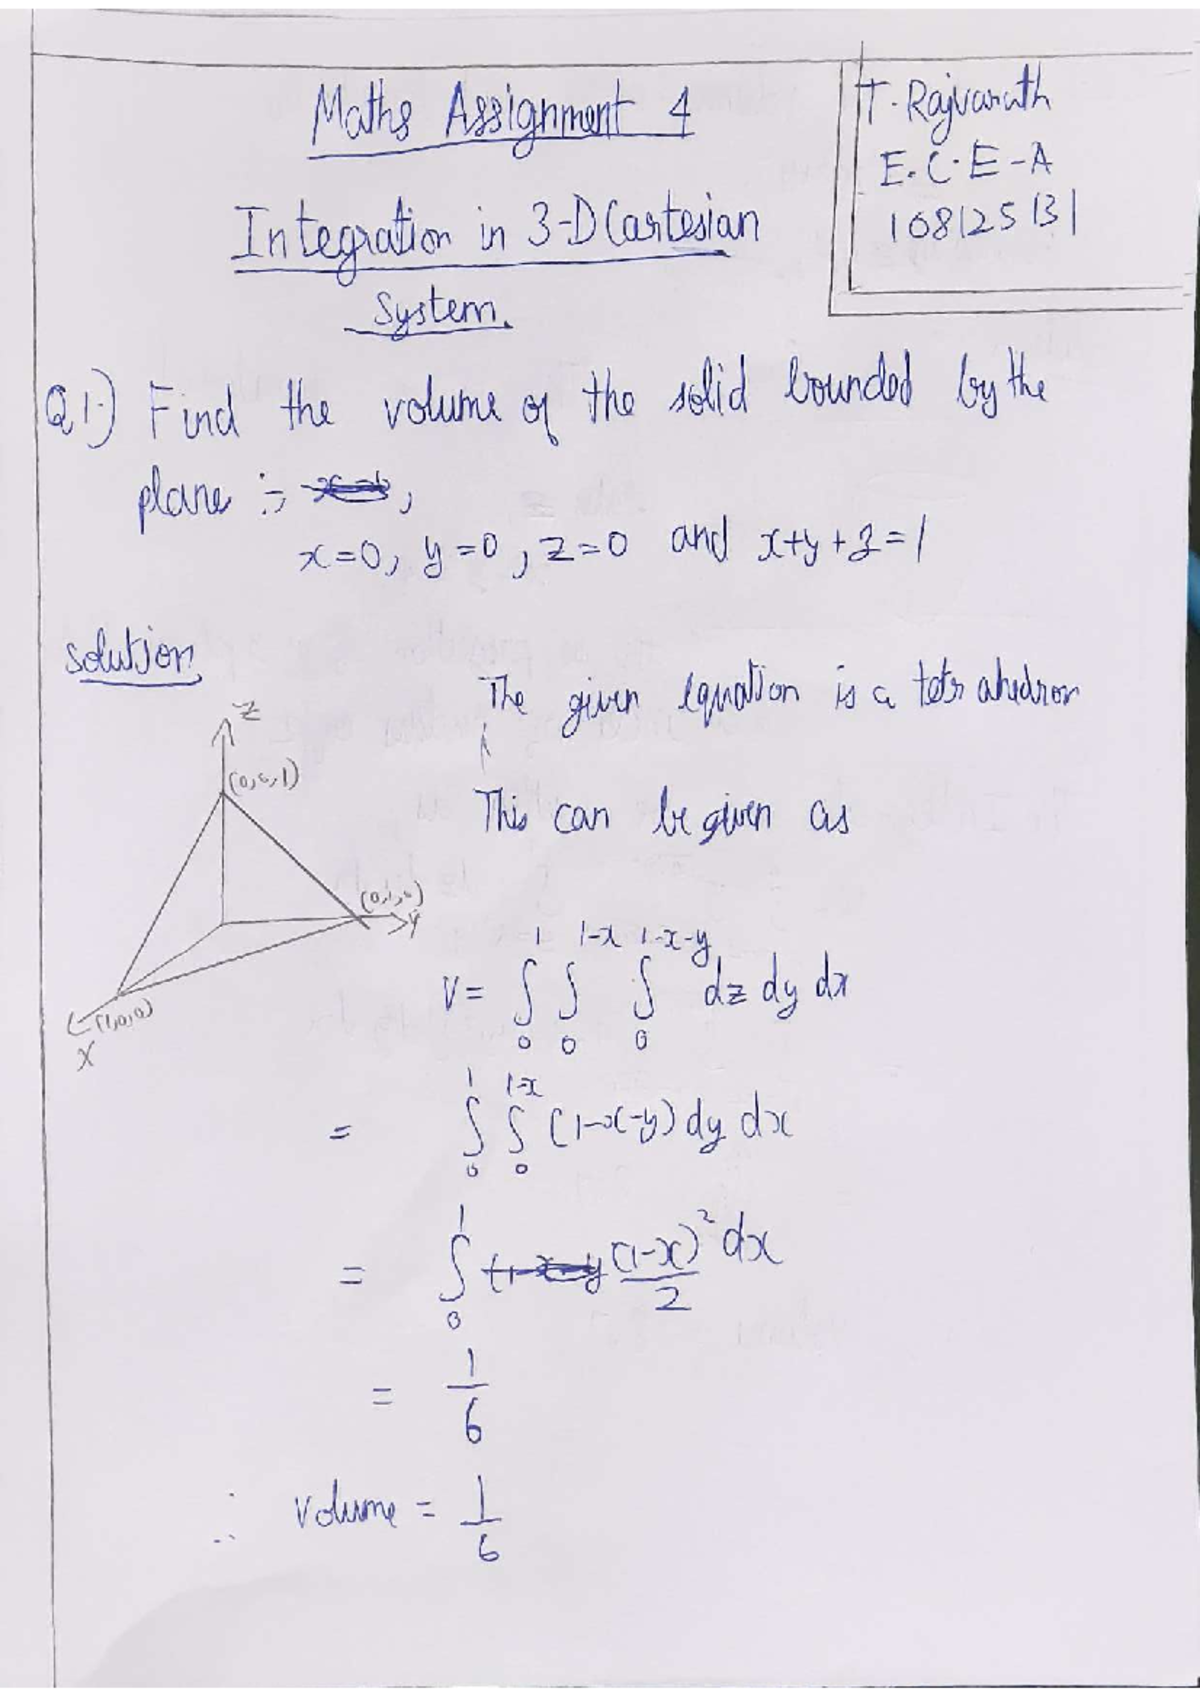 Maths Assignment 4
T. Rajvanath
E.C.E-A
108125131
Integration in 3-D Cartesian
System.
Q1.) Find the volume of the solid bounded by the
plane :-,
x=0, y=0, z=0 and x+y+z=1
Solution
The given equation is a tetrahedron
This can be given as
Z
(0,0,1)
(0,1,0)
Y
(1,0,0)
X
V = ∫₀¹ ∫₀^(1-x) ∫₀^(1-x-y) dz dy dx
= ∫₀¹ ∫₀^(1-x) (1-x-y) dy dx
= ∫₀¹ (1-x)²/2 dx
= 1/6
∴ Volume = 1/6